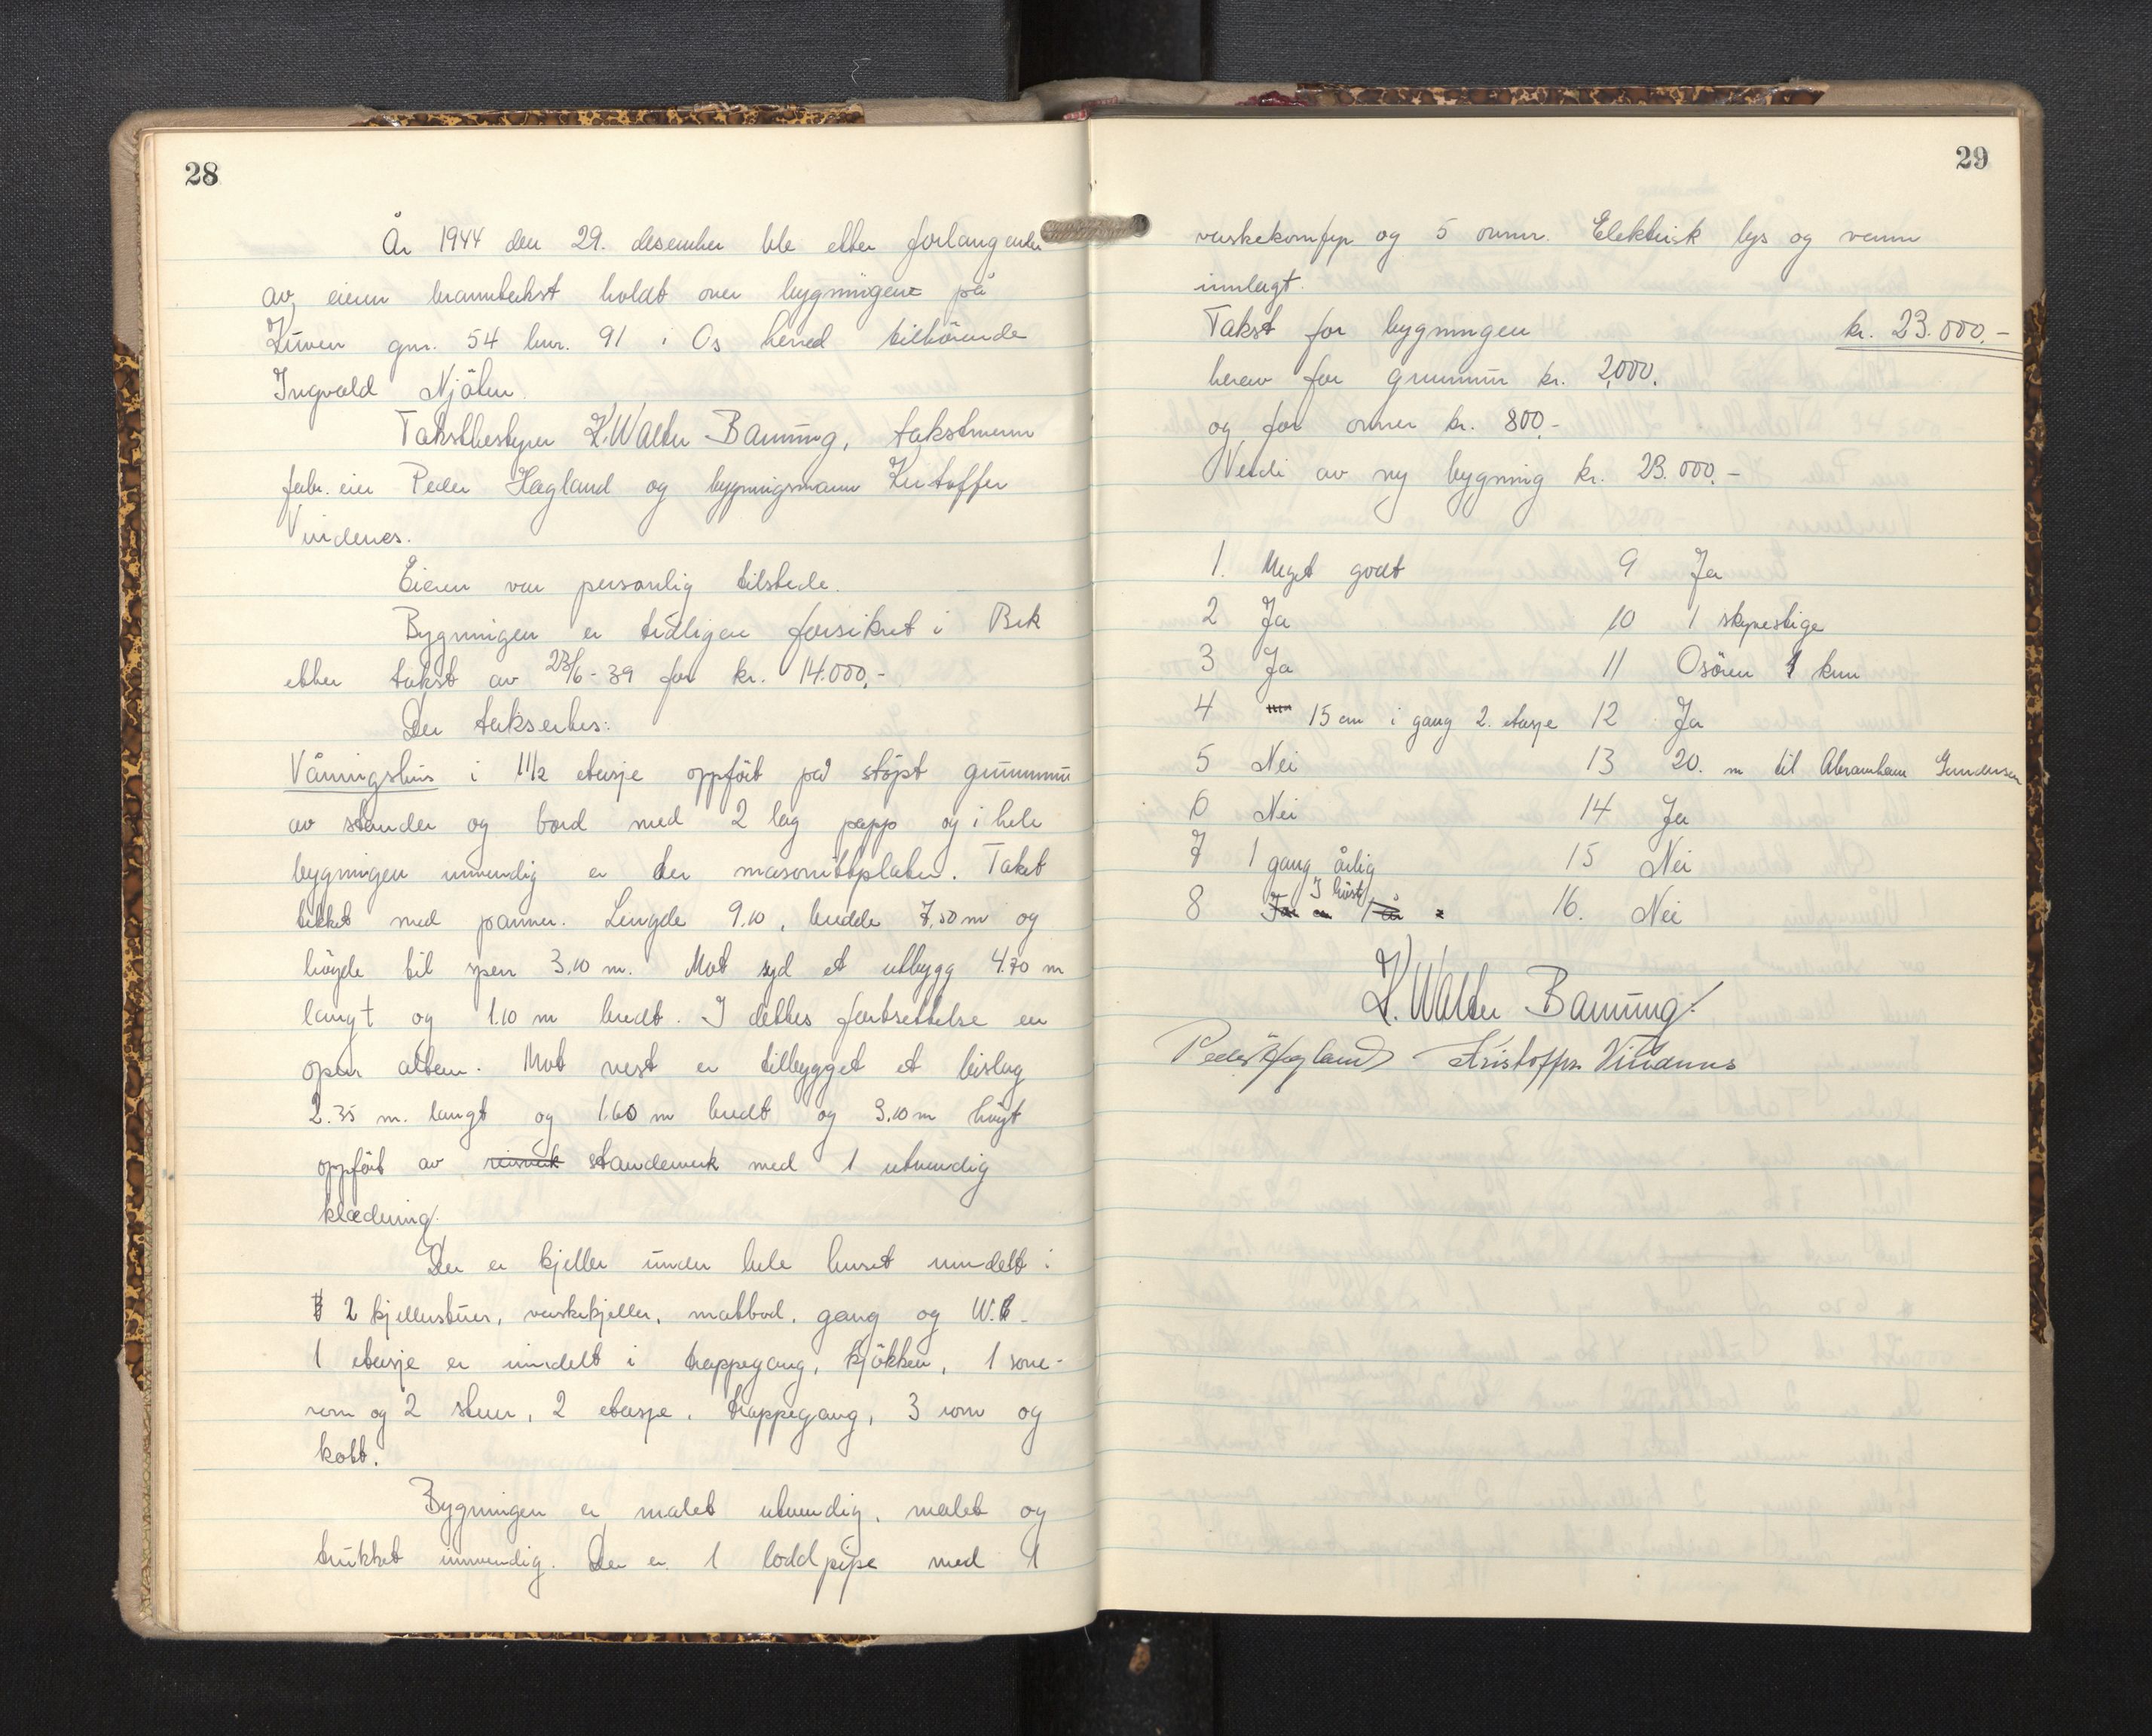 28
År 1944 den 29. desember ble etter forlangende
av eieren branntakst holdt over bygningene på
Kuven gnr. 54 bnr. 91 i Os herred tilhörende
Ingvald Njåten.
Takstbestyrer K. Walter Banning, takstmenn
fabr. eier Peder Hagland og bygningsmann Kristoffer
Vindenes.
Eieren var personlig tilstede.
Bygningen er tidligere forsikret i Brk
etter takst av 23/6-39 for kr. 14.000,-
Der taksertes:
Våningshus i 1 1/2 etasje oppfört på stöpt grunnmur
av stander og bord med 2 lag papp og i hele
bygningen innvendig er der masonittplater. Taket
tekket med panner. Lengde 9.10, bredde 7.50 m og
höyde til rjen 3.10 m. Mot syd et utbygg 4.70 m
langt og 1.10 m bredt. I dettes fortsettelse en
open altan. Mot vest er tilbygget et bislag
2.35 m. langt og 1.60 m bredt og 3.10 m höyt
oppfört av reisverk standerverk med 1 utvendig
klædning.
Der er kjeller under hele huset inndelt i
2 kjellerstuer, vaskekjeller, matbod, gang og W.C.
1 etasje er inndelt i trappegang, kjökken, 1 sove-
rom og 2 stuer, 2 etasje, trappegang, 3 rom og
kott.
Bygningen er malet utvendig, malet og
trukket innvendig. Der er 1 lodd pipe med 1
29
vaskekomfyr og 5 ovner. Elektrisk lys og varme
innlagt.
Takst for bygningen kr. 23.000,-
herav for grunnmur kr. 2,000.
og for ovner kr. 800.-
Verdi av ny bygning kr. 23.000,-
1. Meget godt 9 Ja
2 Ja 10 1 skyvestige
3 Ja 11 Osören 1 km
4 15 cm i gang 2. etasje 12 Ja
5 Nei 13 20. m til Abraham Gundersen
6 Nei 14 Ja
7 1 gang årlig 15 Nei
8 I höst 16. Nei
K. Walter Banning.
Peder Hagland Kristoffer Vindenes